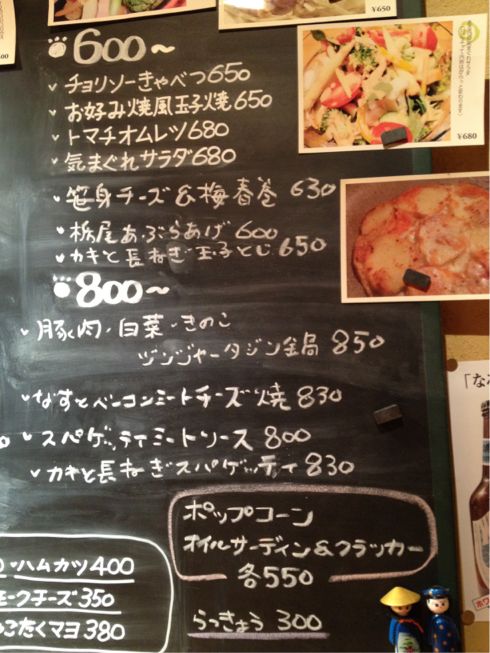 ¥650
600～
チョリソーきゃべつ650
お好み焼風玉子焼650
トマチオムレツ680
気まぐれサラダ680
¥680
笹身チーズ&梅春巻 630
栃尾あぶらあげ 600
カキと長ねぎ玉子とじ 650
800～
豚肉・白菜・きのこ
ジンジャータジン鍋 850
なすとベーコンミートチーズ焼 830
スパゲッティミートソース 800
カキと長ねぎスパゲッティ 830
ポップコーン
オイルサーディン&クラッカー
各550
らっきょう 300
ハムカツ400
モークチーズ350
たくマヨ 380